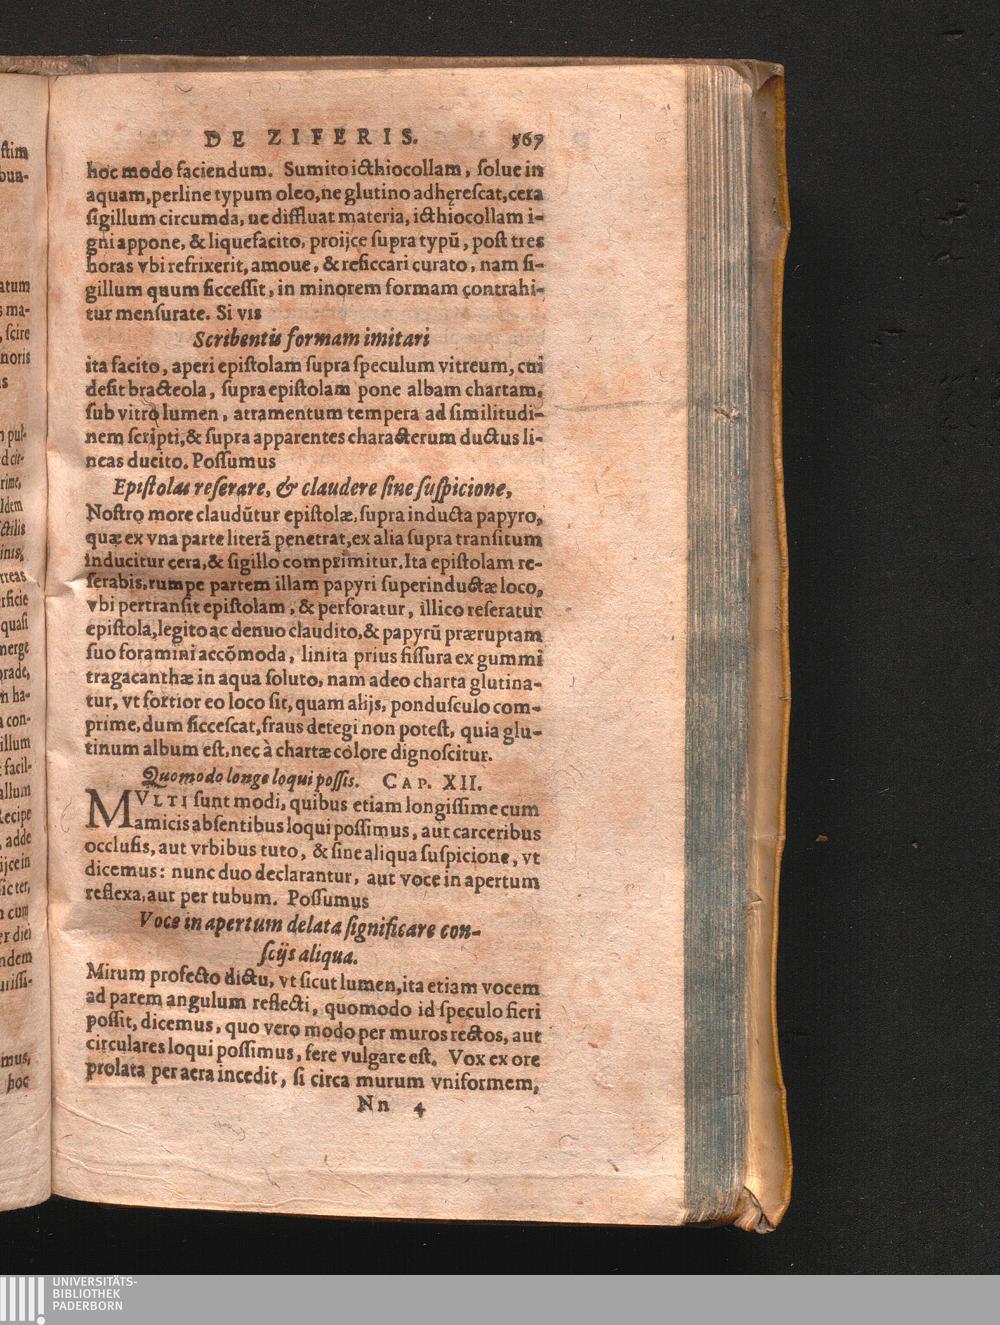 DE ZIFERIS. 567
hoc modo faciendum. Sumito icthiocollam, solue in
aquam, perline typum oleo, ne glutino adhęrescat, cera
sigillum circumda, ne diffluat materia, icthiocollam i-
gni appone, & liquefacito, proijce supra typū, post tres
horas vbi refrixerit, amoue, & resiccari curato, nam si-
gillum quum siccessit, in minorem formam contrahi-
tur mensurate. Si vis
Scribentis formam imitari
ita facito, aperi epistolam supra speculum vitreum, cui
desit bracteola, supra epistolam pone albam chartam,
sub vitro lumen, atramentum tempera ad similitudi-
nem scripti, & supra apparentes characterum ductus li-
neas ducito. Possumus
Epistolas reserare, & claudere sine suspicione,
Nostro more claudūtur epistolæ, supra inducta papyro,
quæ ex vna parte literā penetrat, ex alia supra transitum
inducitur cera, & sigillo comprimitur. Ita epistolam re-
serabis, rumpe partem illam papyri superinductæ loco,
vbi pertransit epistolam, & perforatur, illico reseratur
epistola, legito ac denuo claudito, & papyrū præruptam
suo foramini accōmoda, linita prius fissura ex gummi
tragacanthæ in aqua soluto, nam adeo charta glutina-
tur, vt fortior eo loco sit, quam alijs, pondusculo com-
prime, dum siccescat, fraus detegi non potest, quia glu-
tinum album est, nec à chartæ colore dignoscitur.
Quomodo longe loqui possis. CAP. XII.
MVLTI sunt modi, quibus etiam longissime cum
amicis absentibus loqui possimus, aut carceribus
occlusis, aut vrbibus tuto, & sine aliqua suspicione, vt
dicemus: nunc duo declarantur, aut voce in apertum
reflexa, aut per tubum. Possumus
Voce in apertum delata significare con-
scijs aliqua.
Mirum profecto dictu, vt sicut lumen, ita etiam vocem
ad parem angulum reflecti, quomodo id speculo fieri
possit, dicemus, quo vero modo per muros rectos, aut
circulares loqui possimus, fere vulgare est. Vox ex ore
prolata per aera incedit, si circa murum vniformem,
Nn 4
UNIVERSITÄTS-
BIBLIOTHEK
PADERBORN